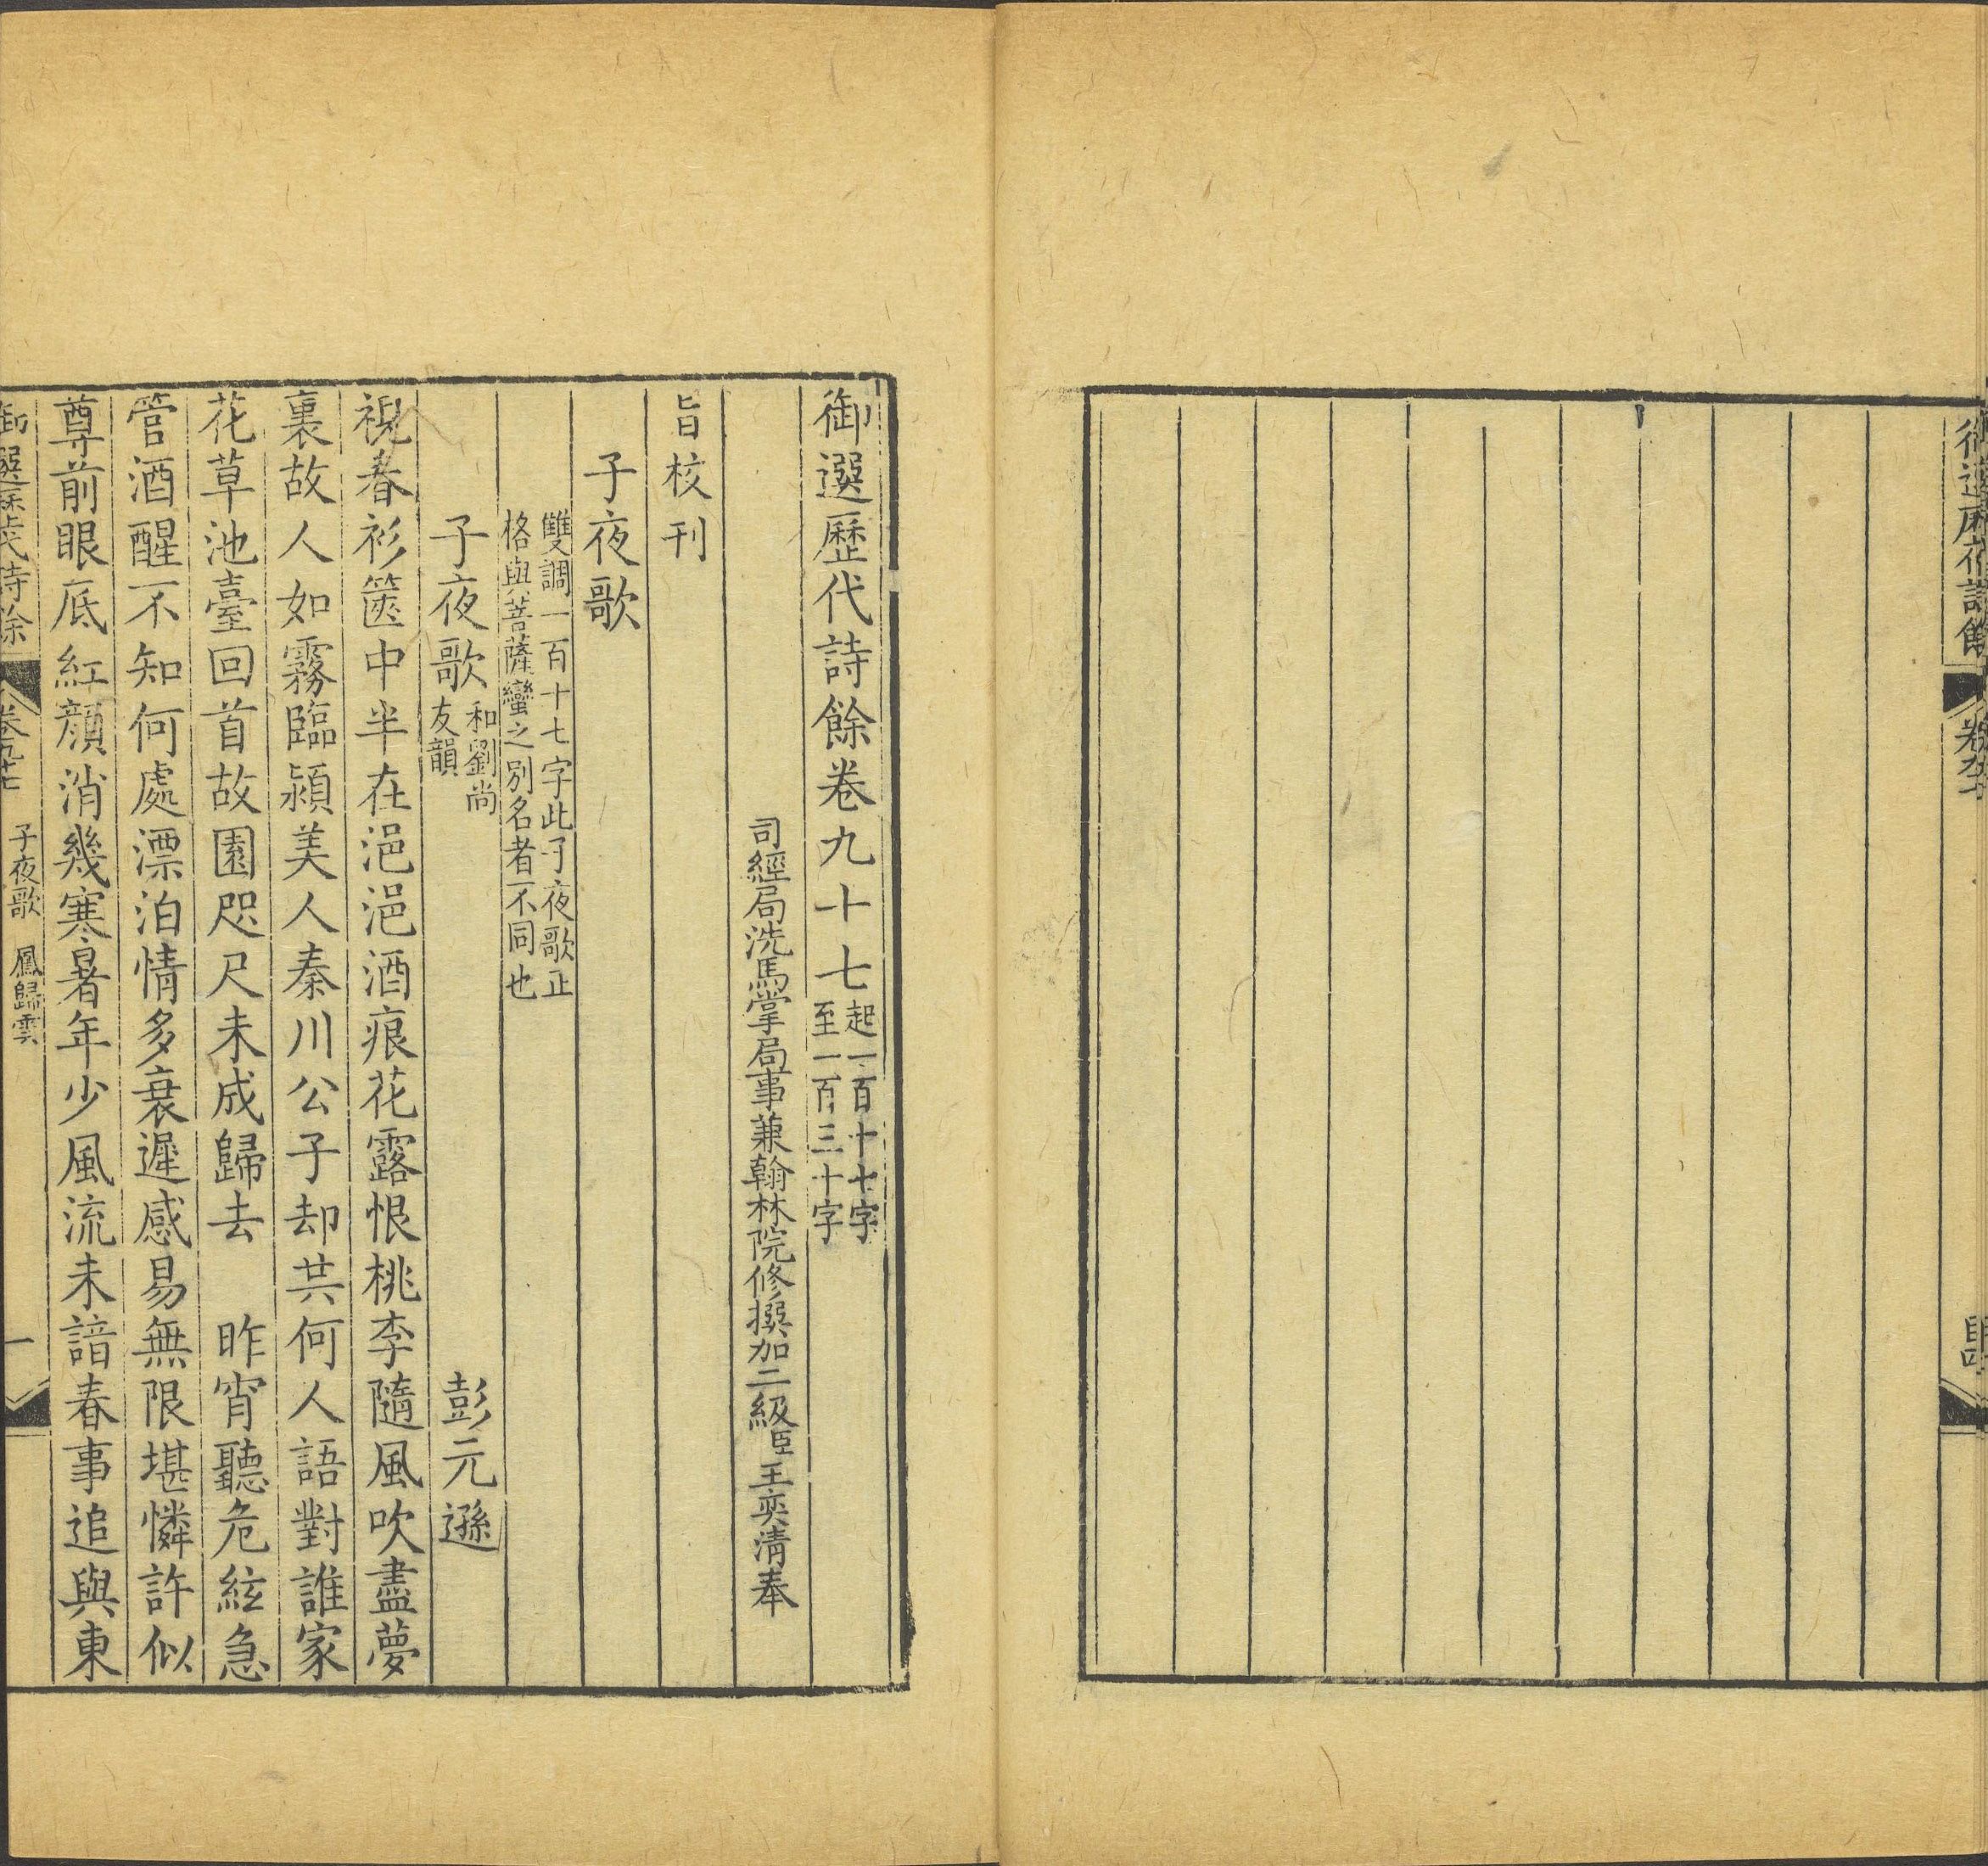 御選歷代詩餘卷九十七起一百十七字至一百三十字
司經局洗馬掌局事兼翰林院修撰加二級臣王奕清奉
旨校刊
子夜歌
雙調一百十七字此子夜歌正
格與菩薩蠻之別名者不同也
子夜歌和劉尚友韻 彭元遜
視春衫篋中半在浥浥酒痕花露恨桃李隨風吹盡夢
裏故人如霧臨潁美人秦川公子却共何人語對誰家
花草池臺回首故園咫尺未成歸去 昨宵聽危絃急
管酒醒不知何處漂泊情多衰遲感易無限堪憐許似
尊前眼底紅顏消幾寒暑年少風流未諳春事追與東
御選歷代詩餘 卷九十七 子夜歌 鳳歸雲 一
御選歷代詩餘